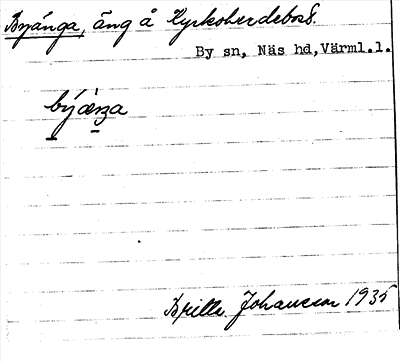 Byänga, äng å Kyrkoherdebos.
By sn, Näs hd, Värml.l.
Johansson 1935